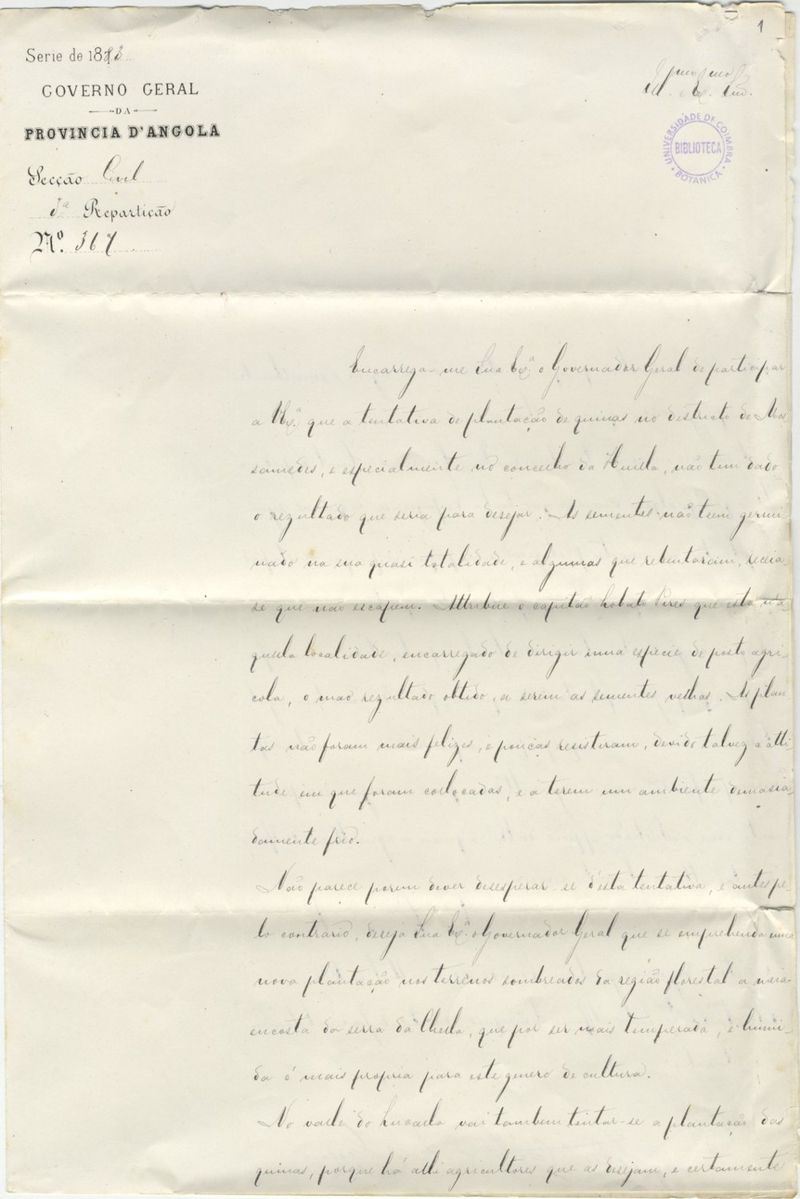 1
Serie de 1883
GOVERNO GERAL
DA
PROVINCIA D'ANGOLA
Secção Civil
3ª Repartição
Nº. 367
Ill. Ex. Snr.
UNIVERSIDADE DE COIMBRA
BIBLIOTECA
BOTANICA
Encarrega-me Sua Exª o Governador Geral de participar
a V Exª que a tentativa de plantação de quinas no destricto de Mos
samedes, e especialmente no concelho da Huilla, não tem dado
o rezultado que seria para desejar. As sementes não teem germi
nado na sua quasi totalidade, e algumas que rebentaram, receia-
se que não escapem. Attribue o capitão Lobato Pires que está na
quella localidade, encarregado de dirigir uma especie de posto agri-
cola, o mao rezultado obtido, a serem as sementes velhas. As plan
tas não foram mais felizes, e poucas resistiram, devido talvez a alti
tude em que foram collocadas, e a terem um ambiente demasia
damente frio.
Não parece porem dever desesperar-se d'esta tentativa, e antes pe-
lo contrario, deseja Sua Exª. o Governador Geral que se emprehenda uma
nova plantação nos terrenos sombreados da região florestal a meia
encosta da serra da Chella, que por ser mais temperada, e humi-
da é mais propria para este genero de cultura.
No valle do Lucalla vai tambem tentar-se a plantação das
quinas, porque há alli agricultores que as desejam, e certamente